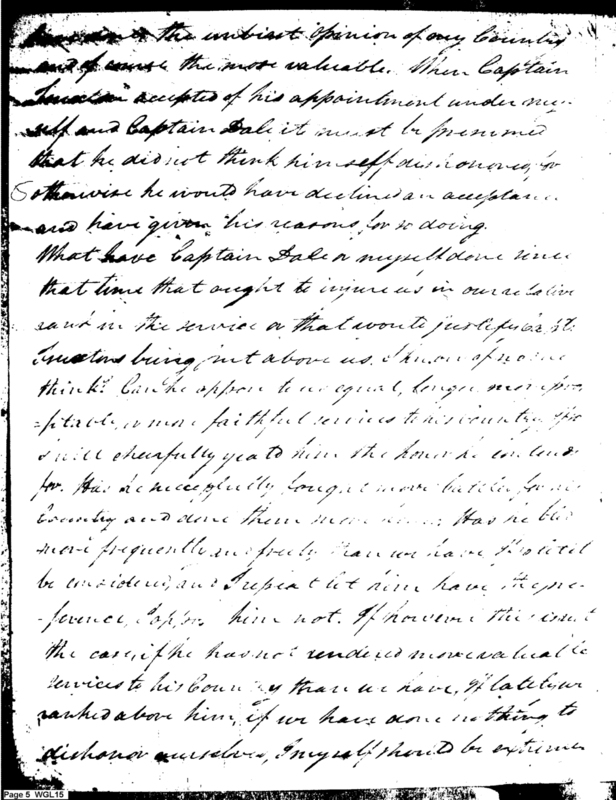 the unbiast Opinion of my Country
and of course the more valuable. When Captain
Truxton accepted of his appointment under my-
self and Captain Dale it must be presumed
that he did not think himself dishonored, for
otherwise he would have declined an acceptance
and have given his reasons for so doing.
What have Captain Dale or myself done since
that time that ought to injure us in our relative
rank in the service or that would justify Capt.
Truxtons being put above us. I know of no one
thing. Can he oppose to us equal, longer more
-pitable, or more faithful services to his country,
I will cheerfully yeald to him the honor he contends
for. Has he successfully fought more battles for his
Country and done them more Has he bled
more frequently and freely than we have
be considered, and I repeat let him have the pre-
-ference, I oppose him not. If however this is not
the case, if he has not rendered more valuable
services to his Country than we have, If lately we
ranked above him, if we have done nothing to
dishonor ourselves, I myself should be extreme
Page 5 WGL15